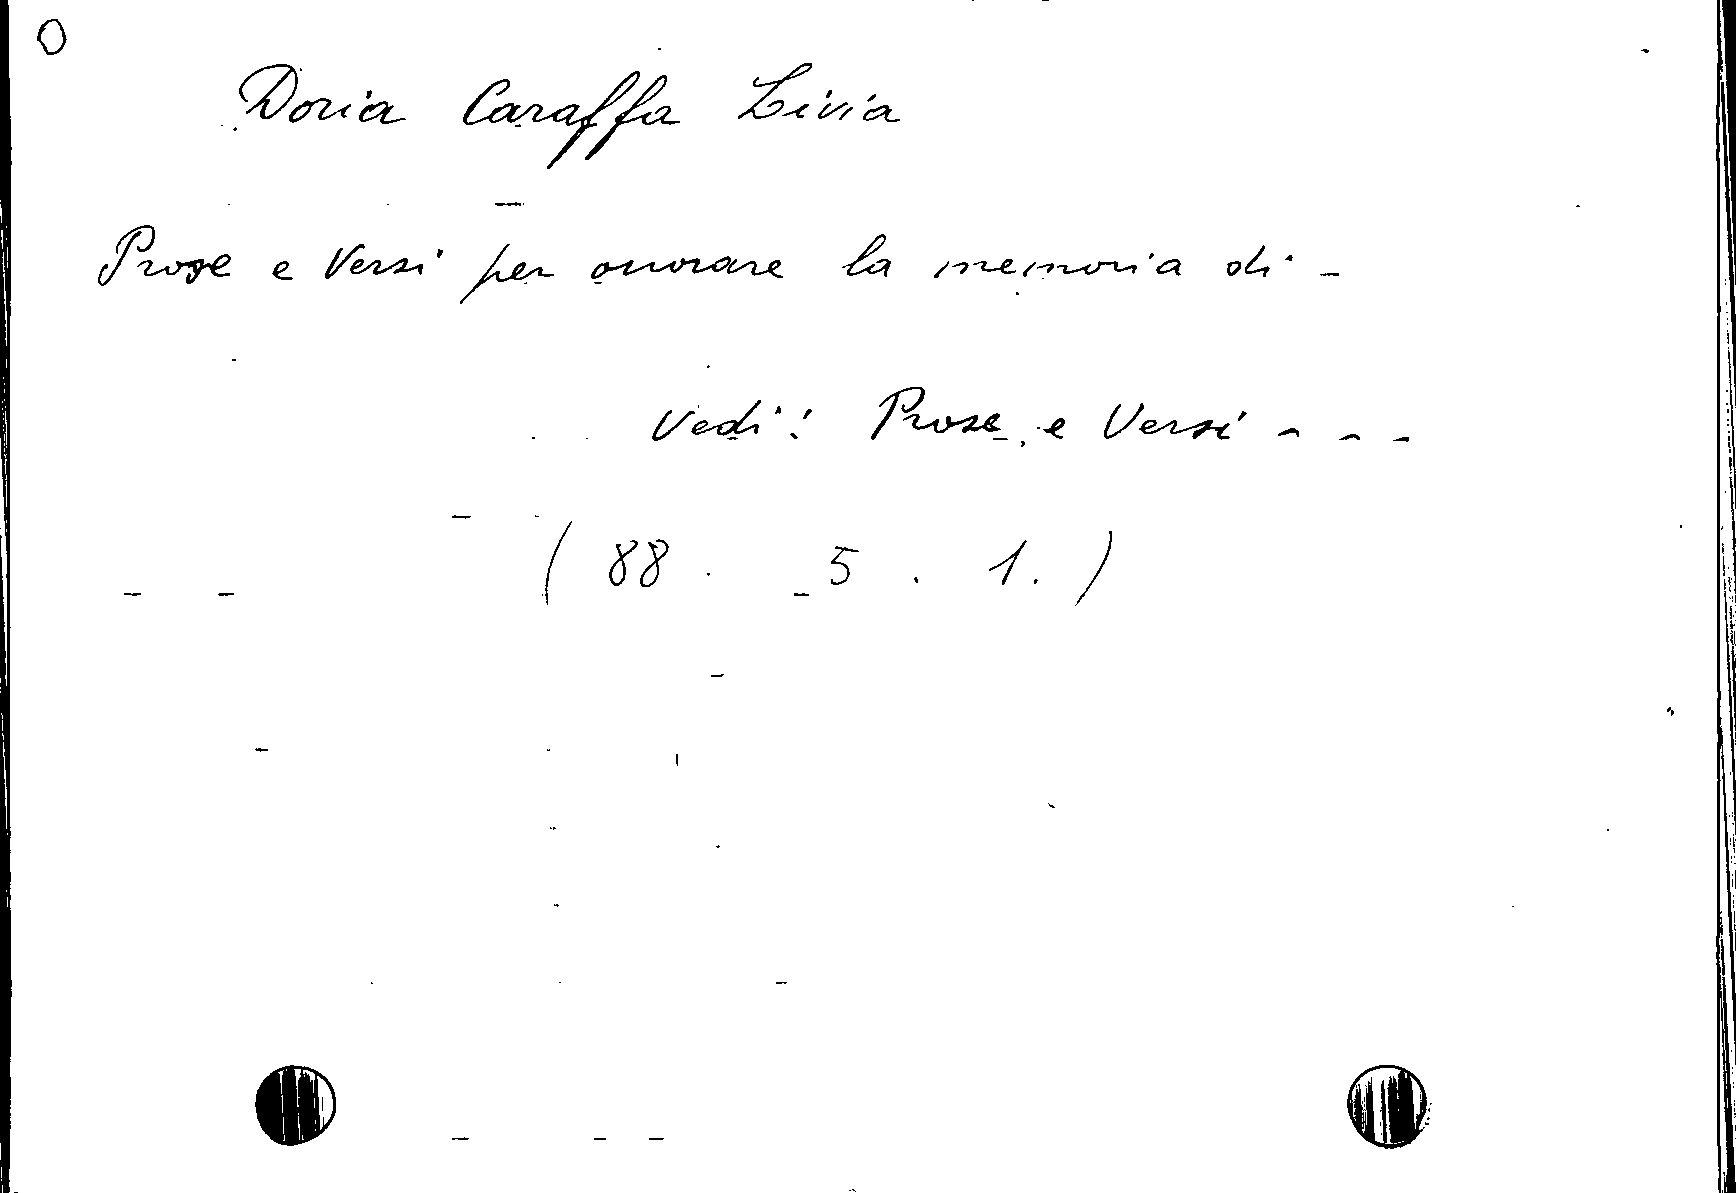 Doria Caraffa Livia
Prose e Versi per onorare la memoria di -
Vedi: Prose e Versi - - -
( 88 . 5 . 1. )